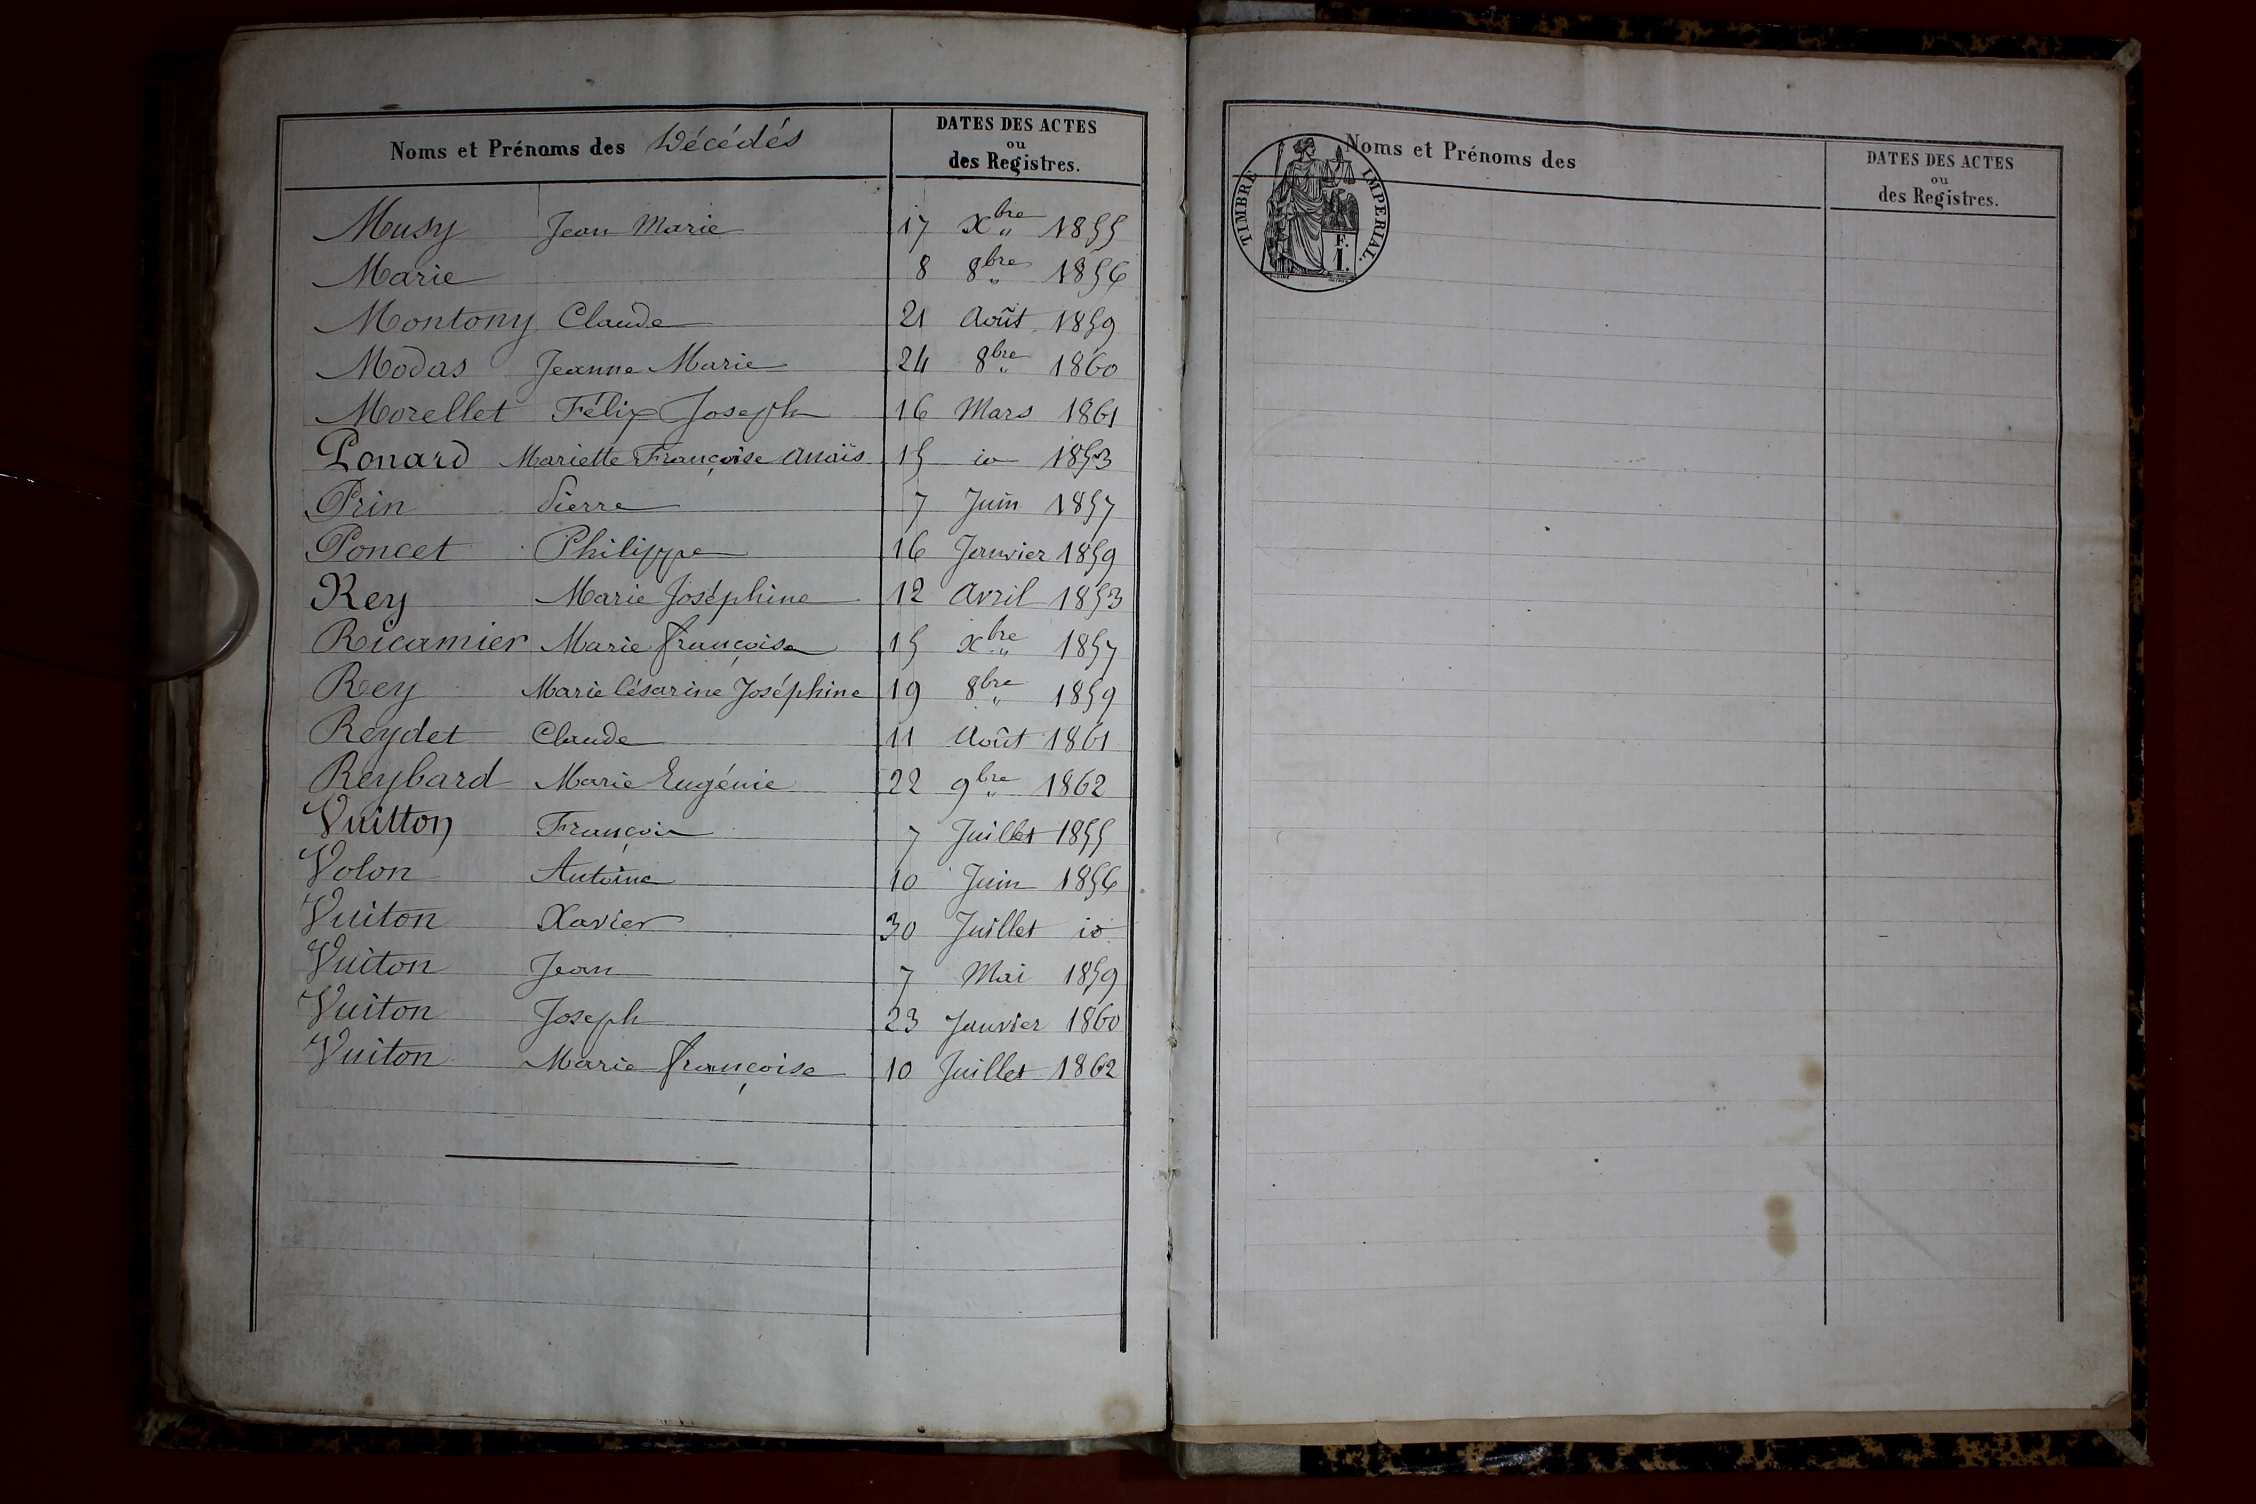 Noms et Prénoms des Décédés
DATES DES ACTES
ou
des Registres.
Musy Jean Marie 17 Xbre 1855
Marie 8 8bre 1856
Montony Claude 21 Août 1859
Modas Jeanne Marie 24 8bre 1860
Morellet Félix Joseph 16 Mars 1861
Ponard Mariette Françoise Anaïs 15 io 1853
Prin Pierre 7 Juin 1857
Poncet Philippe 16 Janvier 1859
Rey Marie Joséphine 12 Avril 1853
Ricamier Marie françoise 15 Xbre 1857
Rey Marie Césarine Joséphine 19 8bre 1859
Reydet Claude 11 Août 1861
Reybard Marie Eugénie 22 9bre 1862
Vuitton François 7 Juillet 1855
Volon Antoine 10 Juin 1856
Vuiton Xavier 30 Juillet io
Vuiton Jean 7 Mai 1859
Vuiton Joseph 23 Janvier 1860
Vuiton Marie françoise 10 Juillet 1862
Noms et Prénoms des
DATES DES ACTES
ou
des Registres.
TIMBRE IMPERIAL.
F.
1.